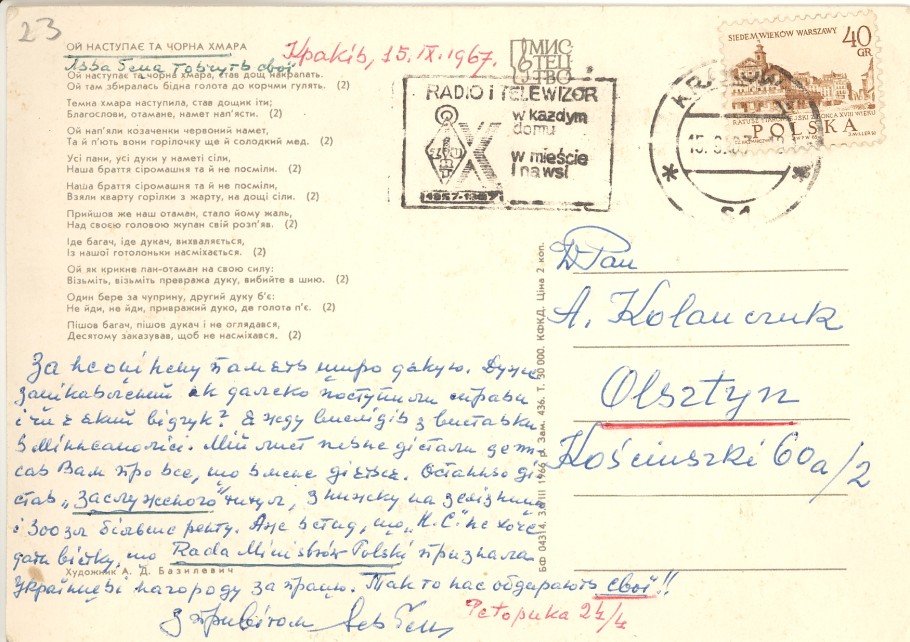 23
ОЙ НАСТУПАЄ ТА ЧОРНА ХМАРА
Краків, 15.IX.1967.
Ой наступає та чорна хмара, став дощ накрапать.
Ой там збиралась бідна голота до корчми гулять. (2)
Темна хмара наступила, став дощик іти;
Благослови, отамане, намет нап'ясти. (2)
Ой нап'яли козаченки червоний намет,
Та й п'ють вони горілочку ще й солодкий мед. (2)
Усі пани, усі дуки у наметі сіли,
Наша браття сіромашня та й не посміли. (2)
Наша браття сіромашня та й не посміли,
Взяли кварту горілки з жарту, на дощі сіли. (2)
Прийшов же наш отаман, стало йому жаль,
Над своєю головою жупан свій розп'яв. (2)
Іде багач, іде дукач, вихваляється,
Із нашої готолоньки насміхається. (2)
Ой як крикне пан-отаман на свою силу:
Візьміть, візьміть превража дуку, вибийте в шию. (2)
Один бере за чуприну, другий дуку б'є:
Не йди, не йди, привражий дуко, де голота п'є. (2)
Пішов багач, пішов дукач і не оглядався,
Десятому заказував, щоб не насміхався. (2)
За неоцінену память щиро дякую. Дуже
зацікавлений як далеко поступила справа
і чи є який відгук? Я жду вислідів з виставки
в Міннеаполісі. Мій лист певне дістали де пи
сав Вам про все, що в мене дієтьсе. Останньо ді
став "заслуженого" титул, знижку на зелізниці
і 300 зл більше ренту. Але встид, що "Н. С." не хоче
дати вістку, що Rada Ministrów Polski признала
Художник А. Д. Базилевич
Українцеві нагороду за працю. Так то нас обдирають свої!!
З привітом Лев Гец
Реторика 24/4
МИС-
ТЕЦ
ТВО
RADIO I TELEWIZOR
w każdym
domu
w mieście
i na wsi
1957-1967
SIEDEM WIEKÓW WARSZAWY
40
GR
POLSKA
БФ 04314. 3.VIII 1966 р. Зам. 436. Т. 30 000. КФКД. Ціна 2 коп.
WPan
A. Kolanczuk
Olsztyn
Kościuszki 60a/2